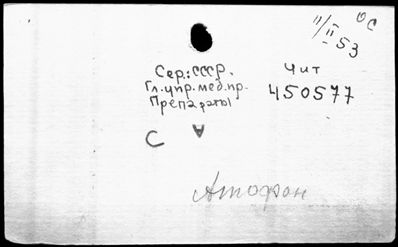 ОС
11/II 53
Сер.: СССР. Чит
Гл. упр. мед. пр. 450577
Препараты
С А
Атофан